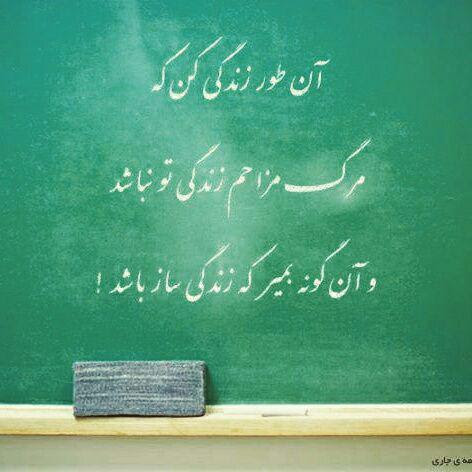 آن طور زندگی کن که
مرگ مزاحم زندگی تو نباشد
و آن گونه بمیر که زندگی ساز باشد !
ی جاری